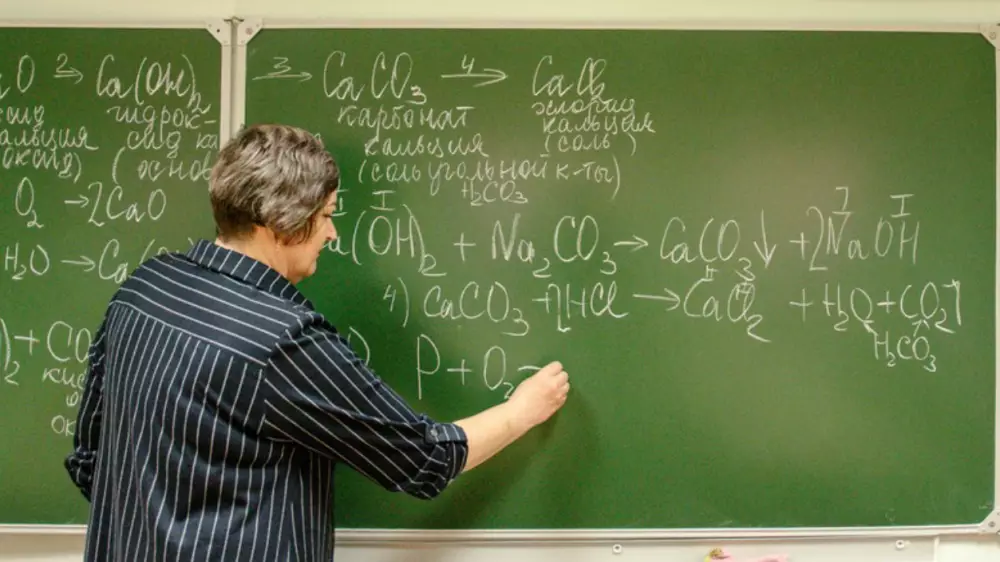 O 2→ Ca(OH)₂
гидрок-
кальция сид ка
(основ
O₂ → 2CaO
H₂O → Ca(O
)₂ + CO₂
3→ CaCO₃ 4→ CaCl₂
карбонат хлорид
кальция кальция
(соль угольной к-ты) (соль)
H₂CO₃
I I I
a(OH)₂ + Na₂CO₃ → CaCO₃↓ + 2NaOH
4) CaCO₃ + 2HCl → CaCl₂ + H₂O + CO₂↑
H₂CO₃
) P + O₂ →